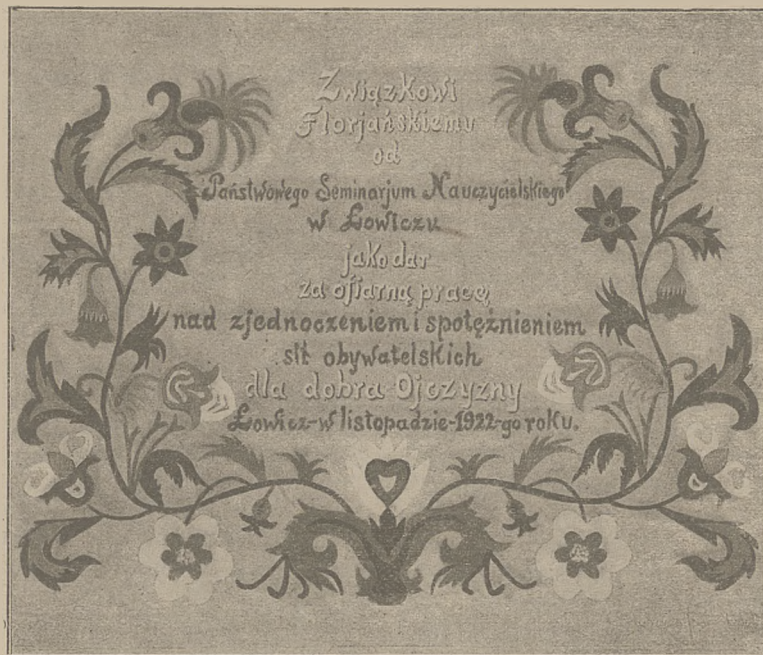 Związkowi
Florjańskiemu
od
Państwowego Seminarjum Nauczycielskiego
w Łowiczu
jako dar
za ofiarną pracę
nad zjednoczeniem i spotężnieniem
sił obywatelskich
dla dobra Ojczyzny
Łowicz-w listopadzie-1922-go roku.